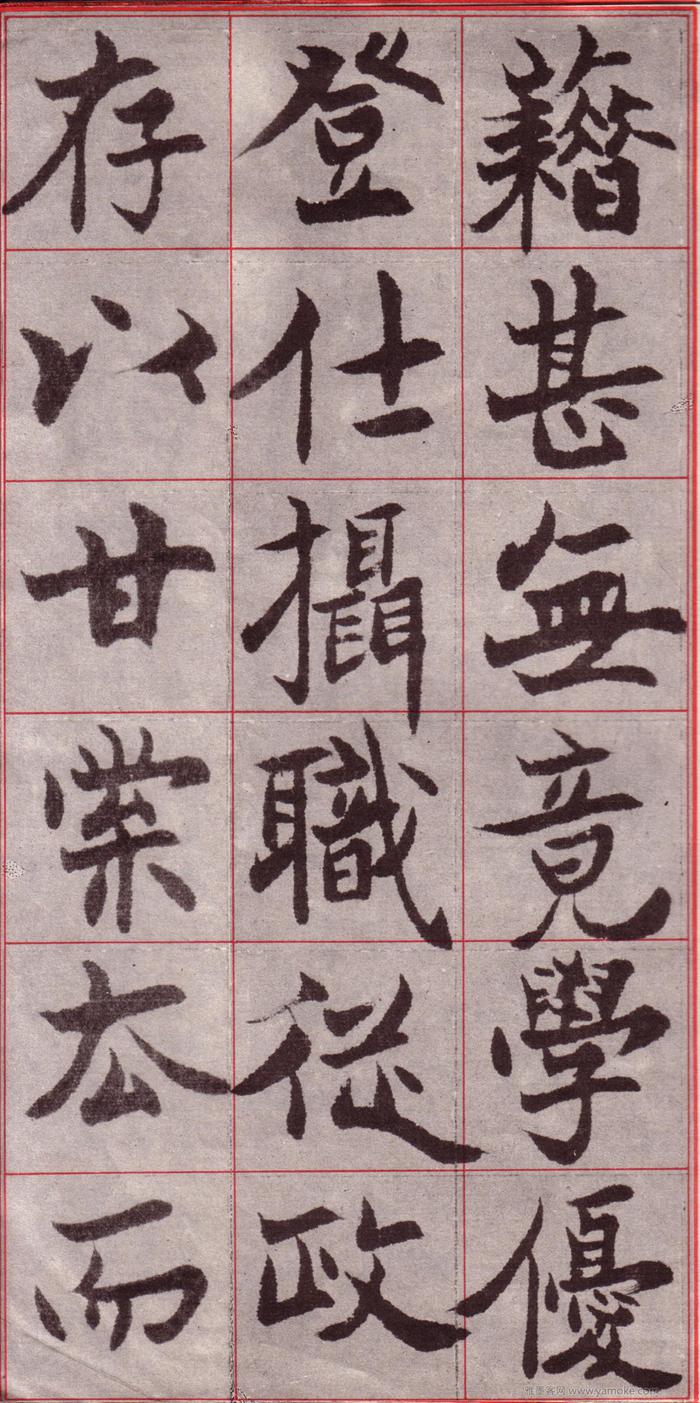 藉甚無竟學優
登仕攝職從政
存以甘棠去而
雅墨客网 www.yamoke.com